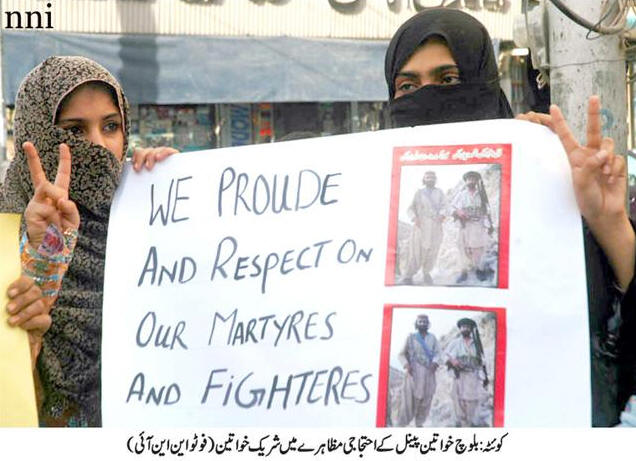 nni
WE PROUDE
AND RESPECT ON
OUR MARTYRES
AND FIGHTERES
کوئٹہ: بلوچ خواتین پینل کے احتجاجی مظاہرے میں شریک خواتین (فوٹو این این آئی)